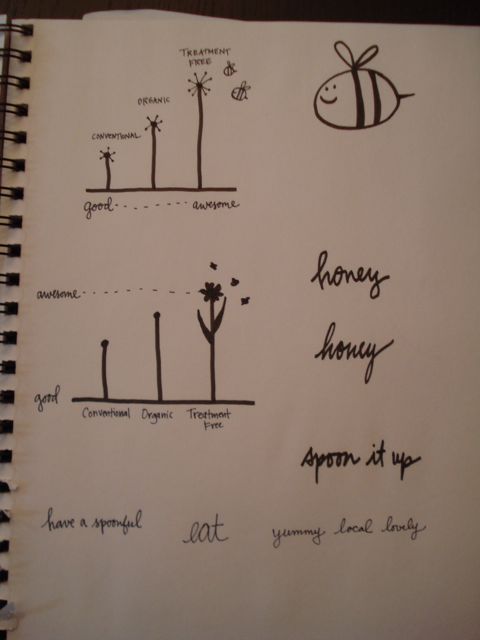 TREATMENT
FREE
ORGANIC
CONVENTIONAL
good awesome
awesome
good
Conventional Organic Treatment
Free
honey
honey
spoon it up
have a spoonful eat yummy local lovely